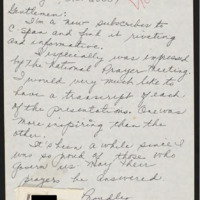 Gentlemen:
I'm a new subscriber to
C-Span and find it riveting
and informative.
I especially was impressed
by the National Prayer Meeting.
I would very much like to
have a transcript of each
of the presentations. One was
more inspiring than the
other.
It's been a while since I
was so proud of those who
govern us. May their
prayers be answered